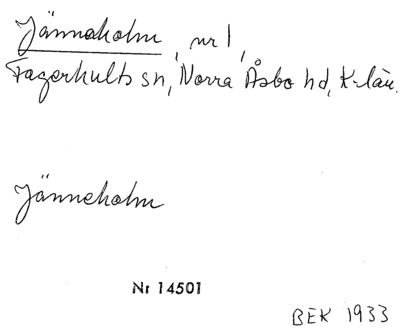 Jänneholm, nr 1,
Fagerhults sn, Norra Åsbo hd, K-län.
Jänneholm
Nr 14501
BEK 1933